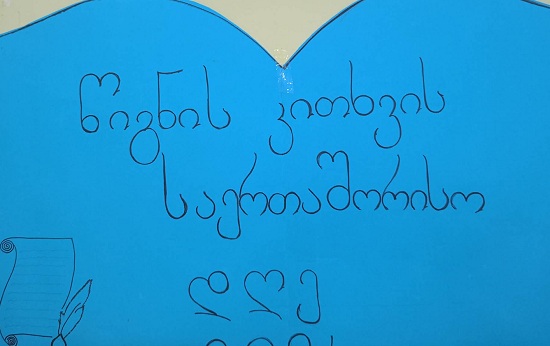 წიგნის კითხვის
საერთაშორისო
დღე